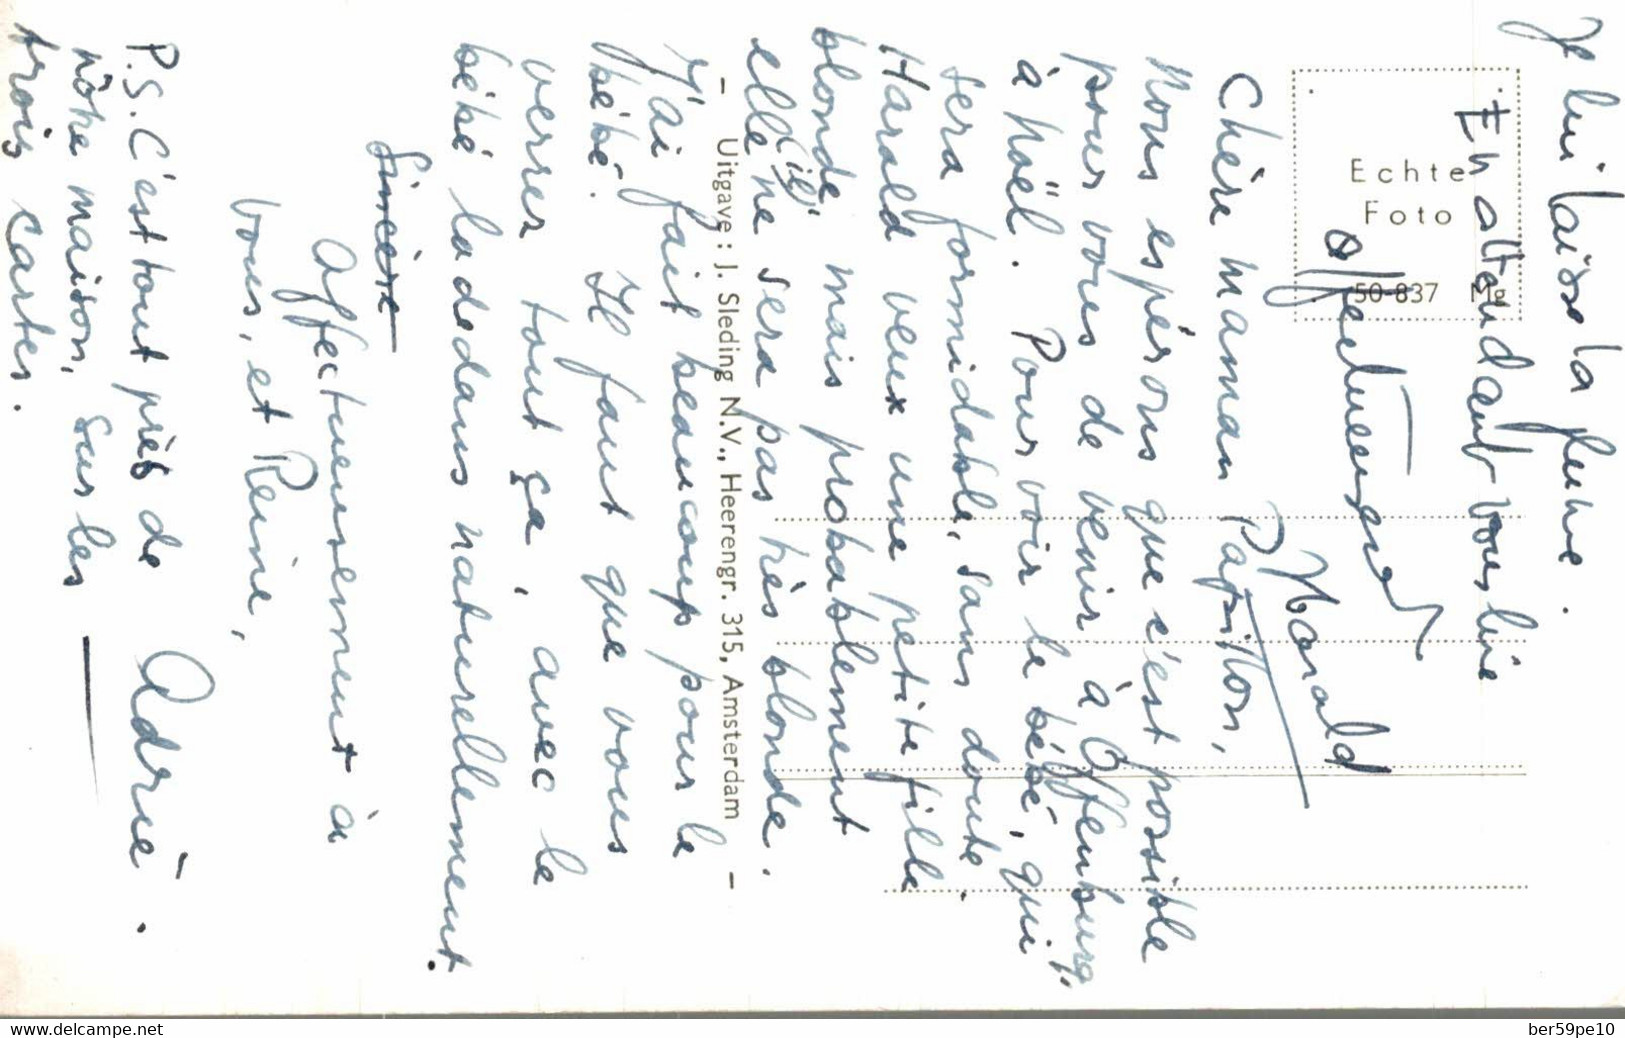 Je lui laisse la plume.
En attendant vous lire
affectueusement
Harald
Chère maman Papillon,
Nous espérons que c'est possible
pour vous de venir à Offenburg,
à Noël. Pour voir le bébé, qui
sera formidable, sans doute.
Harald veux une petite fille
blonde, mais probablement
elle (il) ne sera pas très blonde.
J'ai fait beaucoup pour le
bébé. Il faut que vous
verrez tout ça, avec le
bébé ladedans naturellement.
Sincère
Affectueusement à
vous, et Reine,
Adrie.
P.S. C'est tout près de
nôtre maison, sur les
trois cartes.
Echte
Foto
50-837 Mg
- Uitgave: J. Sleding N.V., Heerengr. 315, Amsterdam -
www.delcampe.net
ber59pe10